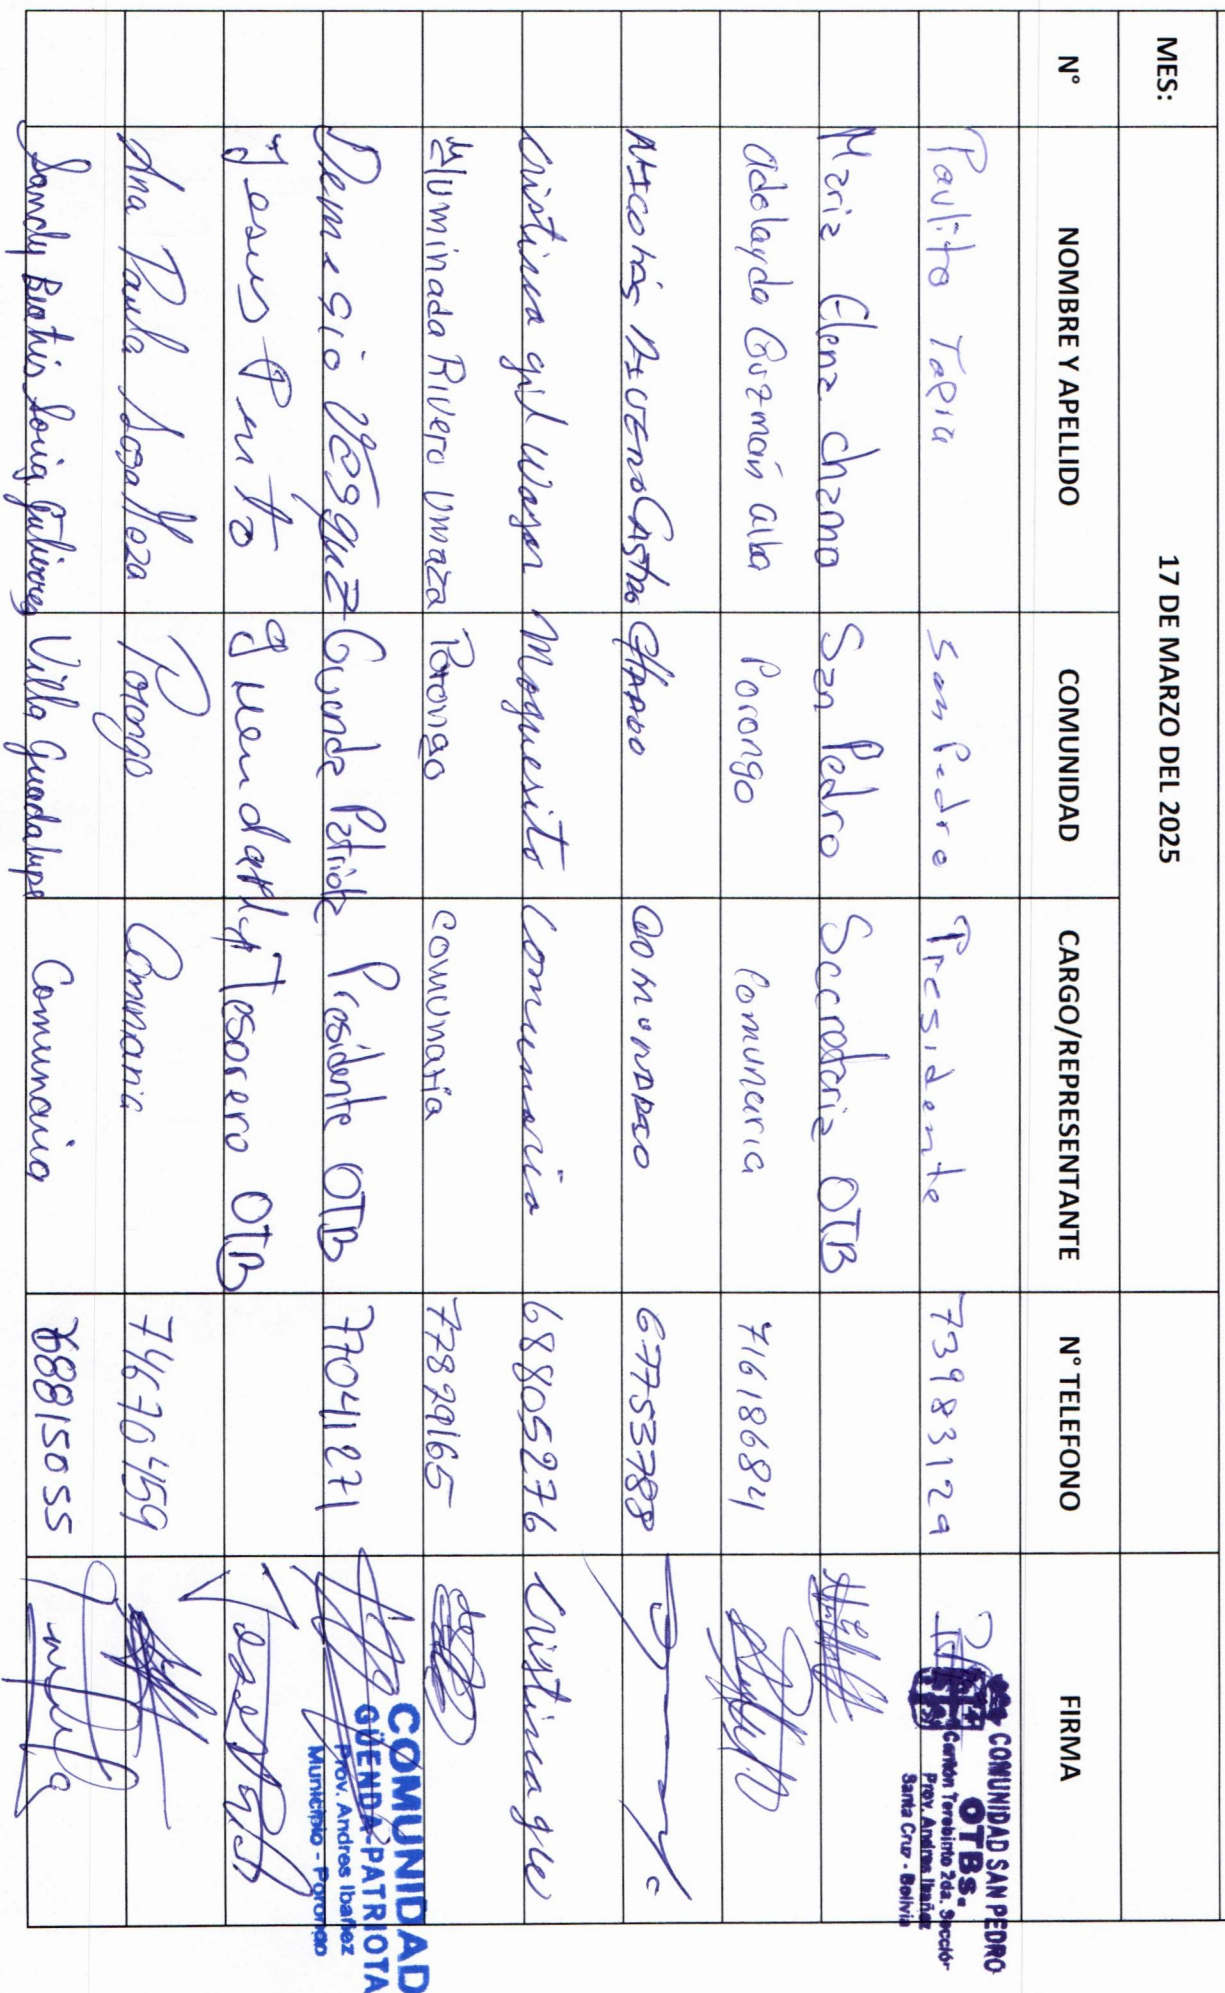 MES: 17 DE MARZO DEL 2025
N° NOMBRE Y APELLIDO COMUNIDAD CARGO/REPRESENTANTE N° TELEFONO FIRMA
Paulito Tapia San Pedro Presidente 73983129
COMUNIDAD SAN PEDRO
OTBs.
Cantón Terebinto 2da. Sección
Prov. Andres Ibañez
Santa Cruz - Bolivia
Maria Elena Chamo San Pedro Secretaria OTB
Adelayda Guzmán alba Porongo Comunaria 71618684
Nicolás Castro 67753788
Cristina gil Moquesito Comunaria 68805276 Cristina gil
Eluminada Rivero Umaza Porongo comunaria 77829165
Demesio Vasquez Guenda Patriota Presidente OTB 77041271
COMUNIDAD
GÜENDA-PATRIOTA
Prov. Andres Ibañez
Municipio - Porongo
Jesus Pinto Guenda Tesorero OTB
Ana Paula Porongo Comunaria 74676459
Sandy Beatris Soria Gutierrez Villa Guadalupe Comunaria 68815055